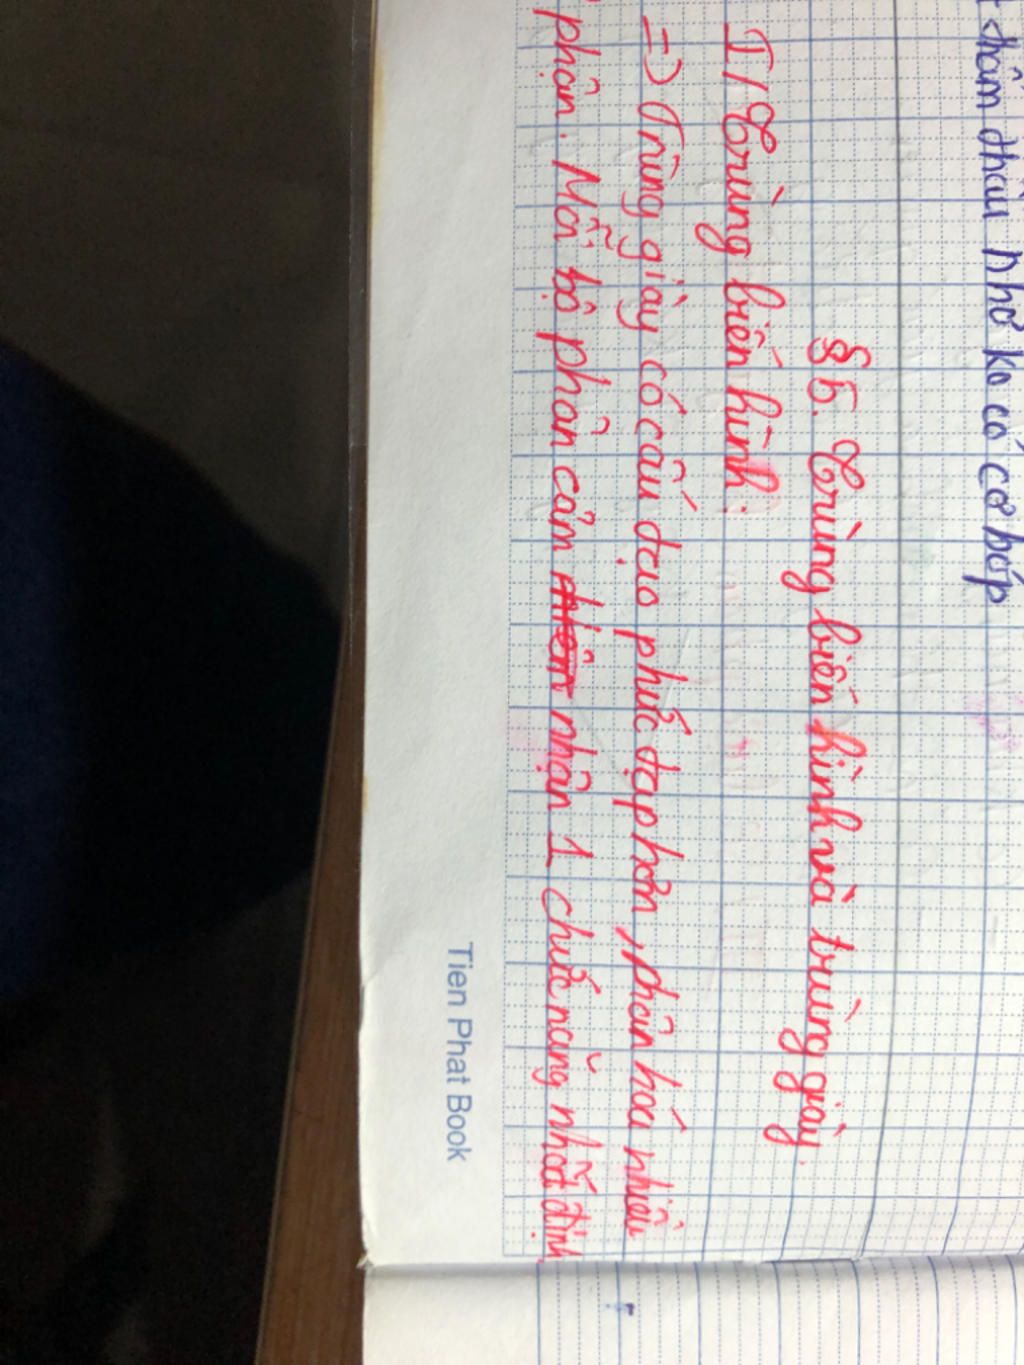 thấm thấu nhờ ko có cơ bóp
§5. Trùng biến hình và trùng giày.
I/ Trùng biến hình:
=> Trùng giày có cấu tạo phức tạp hơn, phân hóa nhiều
phận. Mỗi bộ phận cảm nhận 1 chức năng nhất định
Tien Phat Book